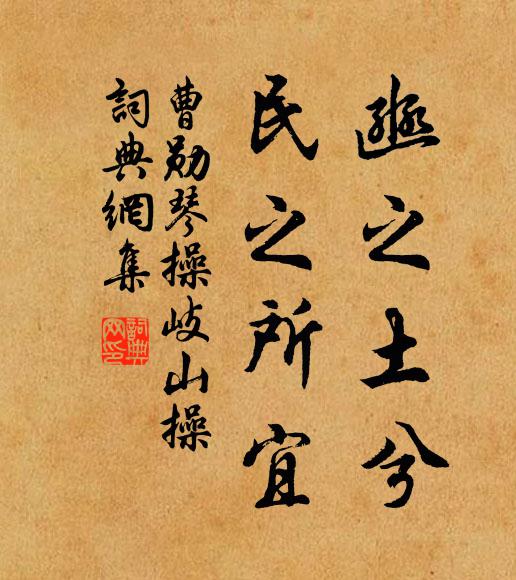 豳之土兮
民之所宜
曹勋琴操岐山操
詞典網集
詞典网印